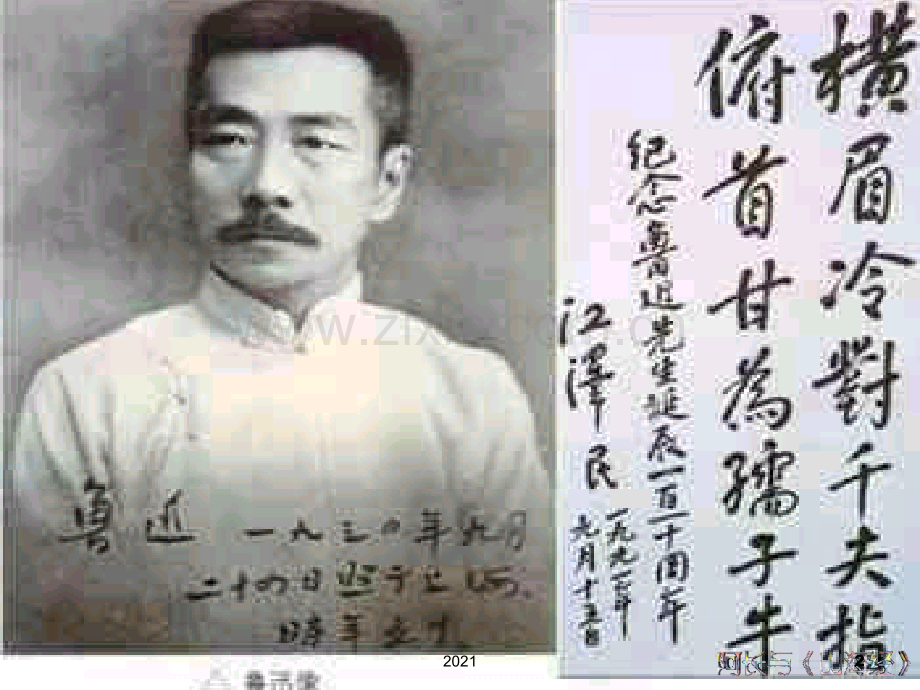 魯迅 一九三〇年九月
二十四日照于上海,
時年五十
橫眉冷對千夫指
俯首甘為孺子牛
纪念魯迅先生诞辰一百一十周年
江澤民
一九九一年
九月十五日
2021